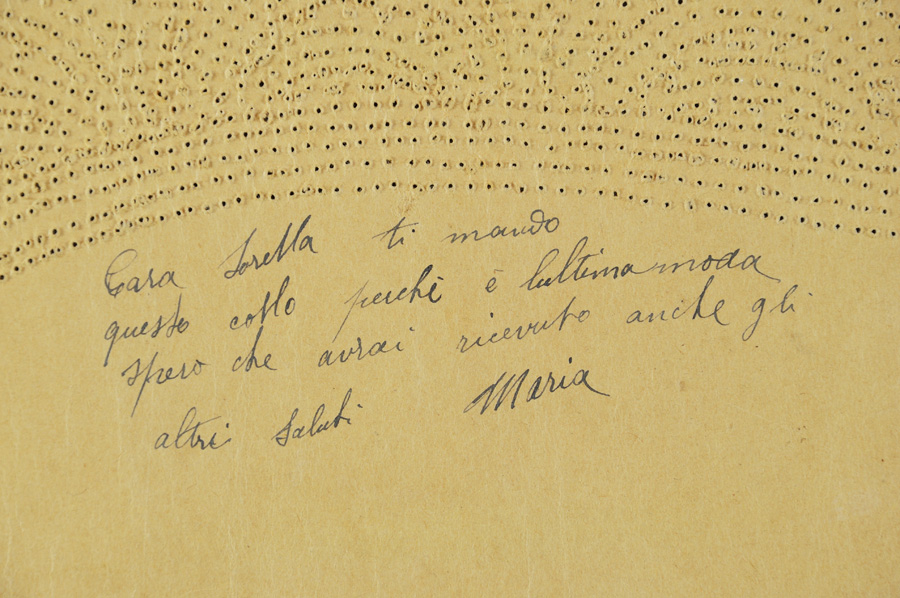 Cara Sorella ti mando
questo collo perchè è lultima moda
spero che avrai ricevuto anche gli
altri saluti Maria